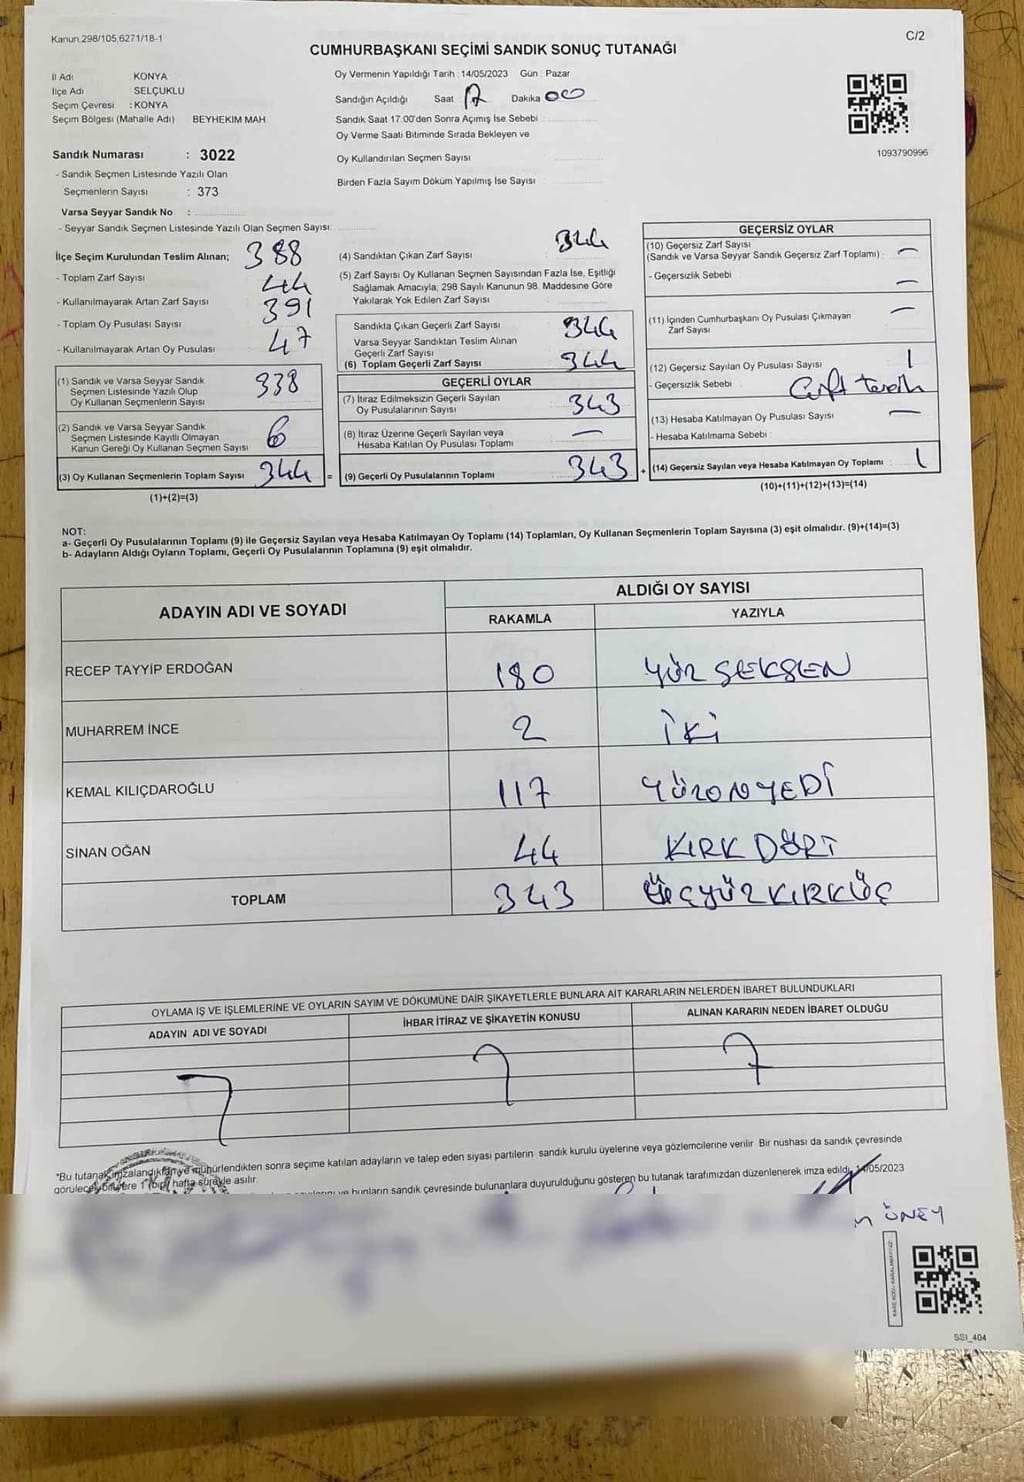 Kanun.298/105,6271/18-1
C/2
CUMHURBAŞKANI SEÇİMİ SANDIK SONUÇ TUTANAĞI
İl Adı KONYA
İlçe Adı SELÇUKLU
Seçim Çevresi : KONYA
Seçim Bölgesi (Mahalle Adı) BEYHEKIM MAH
Oy Vermenin Yapıldığı Tarih : 14/05/2023 Gün : Pazar
Sandığın Açıldığı Saat 17 Dakika 00
Sandık Saat 17.00'den Sonra Açımış İse Sebebi
Oy Verme Saati Bitiminde Sırada Bekleyen ve
Oy Kullandırılan Seçmen Sayısı
Birden Fazla Sayım Döküm Yapılmış İse Sayısı
1093790996
Sandık Numarası : 3022
- Sandık Seçmen Listesinde Yazılı Olan
Seçmenlerin Sayısı : 373
Varsa Seyyar Sandık No :
- Seyyar Sandık Seçmen Listesinde Yazılı Olan Seçmen Sayısı:
İlçe Seçim Kurulundan Teslim Alınan;
- Toplam Zarf Sayısı 388
- Kullanılmayarak Artan Zarf Sayısı 44
- Toplam Oy Pusulası Sayısı 391
- Kullanılmayarak Artan Oy Pusulası 47
(1) Sandık ve Varsa Seyyar Sandık
Seçmen Listesinde Yazılı Olup
Oy Kullanan Seçmenlerin Sayısı 338
(2) Sandık ve Varsa Seyyar Sandık
Seçmen Listesinde Kayıtlı Olmayan
Kanun Gereği Oy Kullanan Seçmen Sayısı 6
(3) Oy Kullanan Seçmenlerin Toplam Sayısı 344 =
(1)+(2)=(3)
(4) Sandıktan Çıkan Zarf Sayısı 344
(5) Zarf Sayısı Oy Kullanan Seçmen Sayısından Fazla İse, Eşitliği
Sağlamak Amacıyla, 298 Sayılı Kanunun 98. Maddesine Göre
Yakılarak Yok Edilen Zarf Sayısı
Sandıkta Çıkan Geçerli Zarf Sayısı 344
Varsa Seyyar Sandıktan Teslim Alınan
Geçerli Zarf Sayısı
(6) Toplam Geçerli Zarf Sayısı 344
GEÇERLİ OYLAR
(7) İtiraz Edilmeksizin Geçerli Sayılan
Oy Pusulalarının Sayısı 343
(8) İtiraz Üzerine Geçerli Sayılan veya
Hesaba Katılan Oy Pusulası Toplamı —
(9) Geçerli Oy Pusulalarının Toplamı 343 +
GEÇERSİZ OYLAR
(10) Geçersiz Zarf Sayısı
(Sandık ve Varsa Seyyar Sandık Geçersiz Zarf Toplamı) : —
- Geçersizlik Sebebi —
(11) İçinden Cumhurbaşkanı Oy Pusulası Çıkmayan
Zarf Sayısı —
(12) Geçersiz Sayılan Oy Pusulası Sayısı 1
- Geçersizlik Sebebi Çift tercih
(13) Hesaba Katılmayan Oy Pusulası Sayısı —
- Hesaba Katılmama Sebebi
(14) Geçersiz Sayılan veya Hesaba Katılmayan Oy Toplamı 1
(10)+(11)+(12)+(13)=(14)
NOT:
a- Geçerli Oy Pusulalarının Toplamı (9) ile Geçersiz Sayılan veya Hesaba Katılmayan Oy Toplamı (14) Toplamları, Oy Kullanan Seçmenlerin Toplam Sayısına (3) eşit olmalıdır. (9)+(14)=(3)
b- Adayların Aldığı Oyların Toplamı, Geçerli Oy Pusulalarının Toplamına (9) eşit olmalıdır.
ADAYIN ADI VE SOYADI
ALDIĞI OY SAYISI
RAKAMLA YAZIYLA
RECEP TAYYİP ERDOĞAN 180 YÜZ SEKSEN
MUHARREM İNCE 2 İKİ
KEMAL KILIÇDAROĞLU 117 YÜZONYEDİ
SİNAN OĞAN 44 KIRK DÖRT
TOPLAM 343 ÜÇYÜZKIRKÜÇ
OYLAMA İŞ VE İŞLEMLERİNE VE OYLARIN SAYIM VE DÖKÜMÜNE DAİR ŞİKAYETLERLE BUNLARA AİT KARARLARIN NELERDEN İBARET BULUNDUKLARI
ADAYIN ADI VE SOYADI İHBAR İTİRAZ VE ŞİKAYETİN KONUSU ALINAN KARARIN NEDEN İBARET OLDUĞU
"Bu tutanak imzalandıktan ve mühürlendikten sonra seçime katılan adayların ve talep eden siyasi partilerin sandık kurulu üyelerine veya gözlemcilerine verilir. Bir nüshası da sandık çevresinde
görülecek bir yere 1 (bir) hafta süreyle asılır.
ve bunların sandık çevresinde bulunanlara duyurulduğunu gösteren bu tutanak tarafımızdan düzenlenerek imza edildi. 14/05/2023
ÜNEY
SSI_404